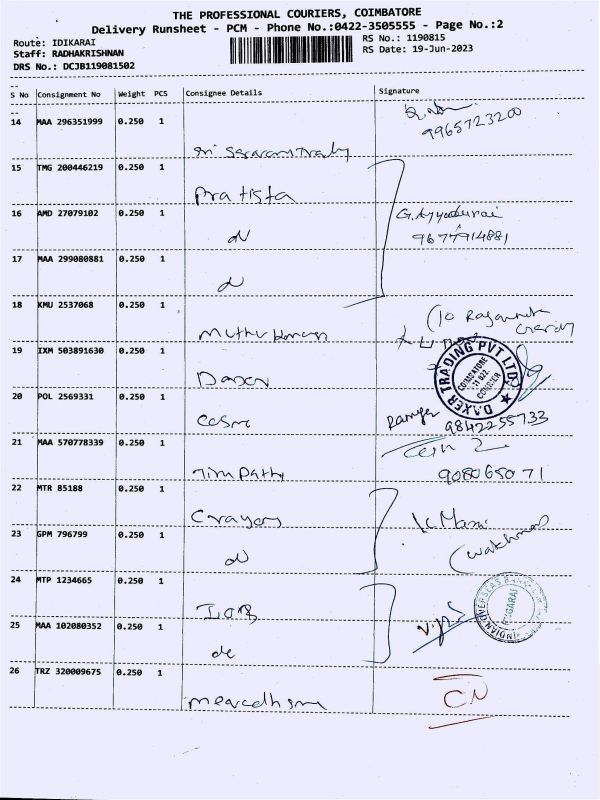 THE PROFESSIONAL COURIERS, COIMBATORE
Delivery Runsheet - PCM - Phone No.:0422-3505555 - Page No.:2
Route: IDIKARAI
Staff: RADHAKRISHNAN
DRS No.: DCJB119081502
RS No.: 1190815
RS Date: 19-Jun-2023
S No Consignment No Weight PCS Consignee Details Signature
14 MAA 296351999 0.250 1
9965723200
15 TMG 200446219 0.250 1
Pratista
16 AMD 27079102 0.250 1
G. Ayyadurai
9677914881
17 MAA 299080881 0.250 1
18 KMU 2537068 0.250 1
19 IXM 503891630 0.250 1
DAXER TRADING PVT LTD.
COIMBATORE
COURIER
20 POL 2569331 0.250 1
9842255733
21 MAA 570778339 0.250 1
9080650 71
22 MTR 85188 0.250 1
Crayons
23 GPM 796799 0.250 1
24 MTP 1234665 0.250 1
IOB
INDIAN OVERSEAS BANK
25 MAA 102080352 0.250 1
26 TRZ 320009675 0.250 1
CN